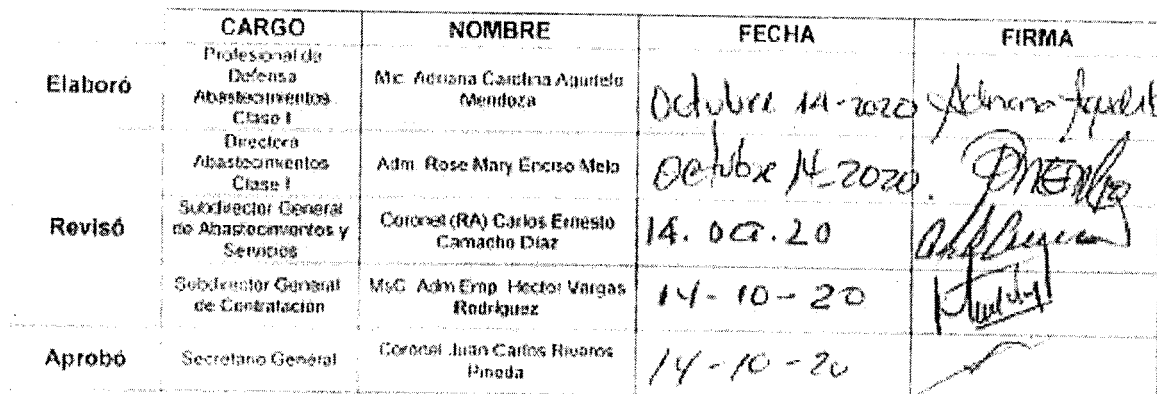 CARGO NOMBRE FECHA FIRMA
Elaboró
Profesional de
Defensa
Abastecimientos
Clase I
Mic. Adriana Carolina Agudelo
Mendoza
Octubre 14-2020
Adriana Agudelo
Directora
Abastecimientos
Clase I
Adm. Rose Mary Enciso Melo
Octubre 14-2020.
Revisó
Subdirector General
de Abastecimientos y
Servicios
Coronel (RA) Carlos Ernesto
Camacho Díaz
14. OCT. 20
Subdirector General
de Contratación
MsC. Adm Emp. Hector Vargas
Rodríguez
14-10-20
Aprobó
Secretario General
Coronel Juan Carlos Riveros
Pineda
14-10-20